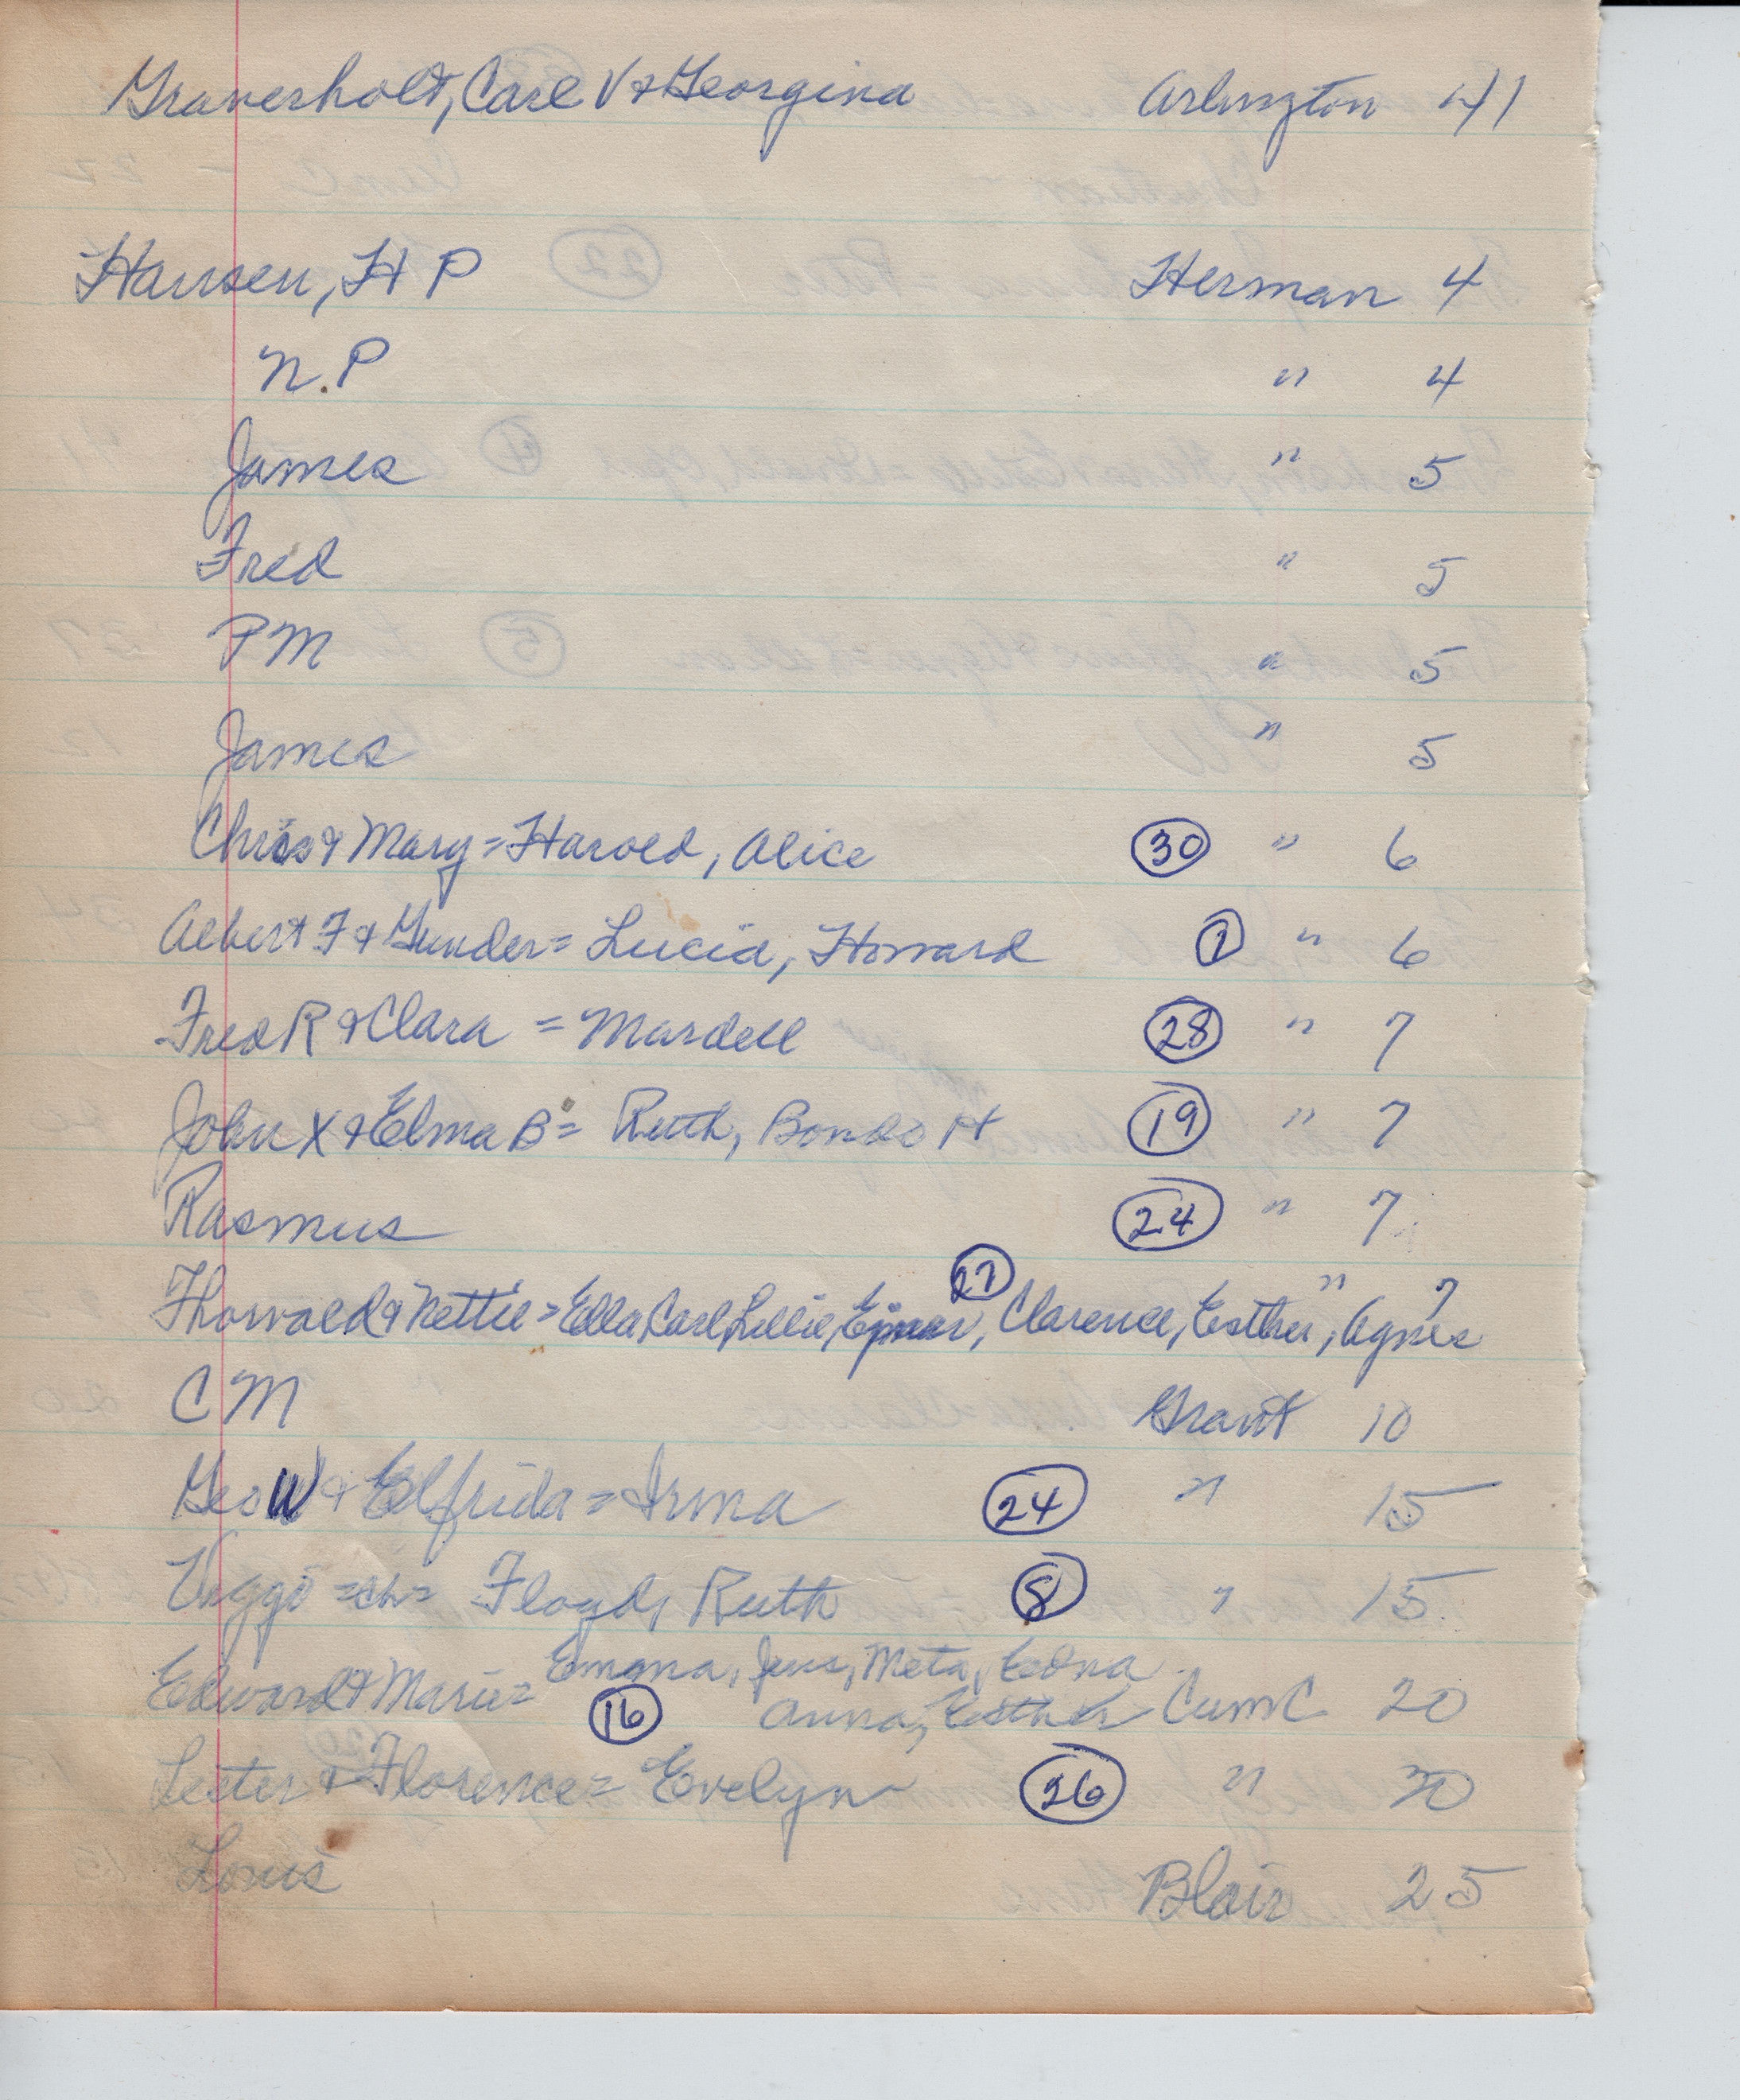 Graverholt, Carl V & Georgina Arlington 41
Hansen, H P Herman 4
N.P " 4
James " 5
Fred " 5
PM " 5
James " 5
Chris & Mary = Harold, Alice 30 " 6
Albert F & Gunder = Lucia, Howard 1 " 6
Fred R & Clara = Mardell 28 " 7
John X & Elma B = Ruth, Bondo H 19 " 7
Rasmus 24 " 7
27 " 7
Thorvald & Nettie = Ella Carl, Lillie, Ejnar, Clarence, Esther, Agnes
C M Grant 10
Geo W & Elfrida = Irma 24 " 15
Viggo = ch = Floyd, Ruth 8 " 15
Emma, Jens, Meta, Edna
Edward & Marie = 16 Anna, Esther CumC 20
Lester & Florence = Evelyn 26 " 30
Louis Blair 25